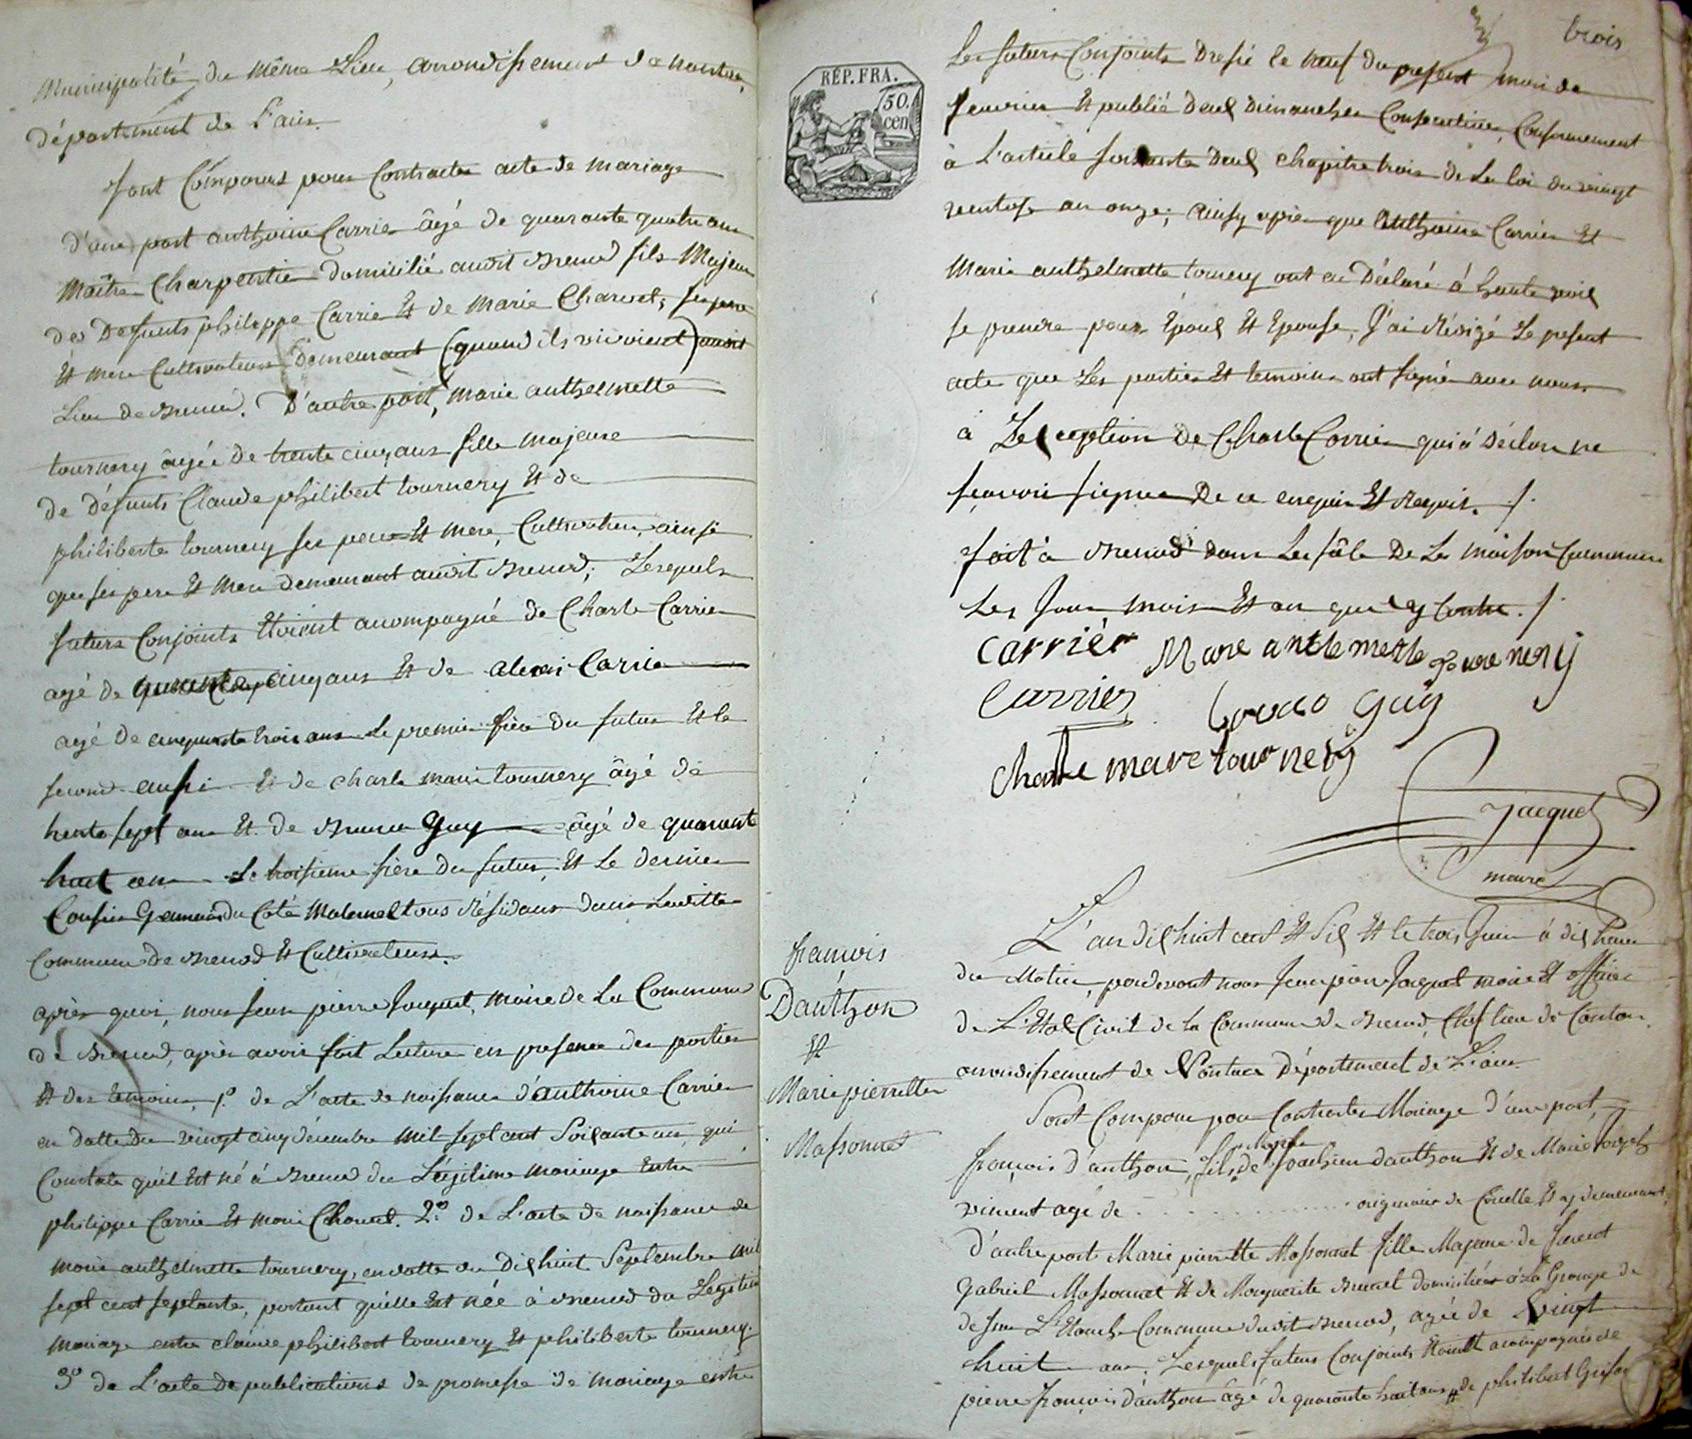 Municipalité du même Lieu, arrondissement de nantua,
département de l'ain.
Sont Comparus pour Contracter acte de mariage
d'une part anthoine Carrier âgé de quarante quatre ans
Maître Charpentier domicilié audit Brenod fils Majeur
des Defunts philippe Carrier Et de Marie Charvet, ses pere
Et mere Cultivateurs demeurant (quand ils vivoient) audit
Lieu de Brenod. D'autre part, marie anthelmette
tournery âgée de trente cinq ans fille majeure
de défunts Claude philibert tournery Et de
philiberte tournery ses pere Et mere, Cultivateurs, ainsi
que ses pere Et mere demeurant audit Brenod; Lesquels
futurs Conjoints Etoient accompagné de Charle Carrier
agé de cinq ans Et de alexis Carrier
agé de cinquante trois ans Le premier frère du futur Et le
second aussi Et de charle marie tournery âgé de
trente sept ans Et de Guy âgé de quarante
huit ans Le troisieme frère du futur, Et Le dernier
Cousin Germain du Coté Maternel tous Résidans dans Laditte
Commune de Brenod Et Cultivateurs.
après quoi, nous Jean pierre Jacquet, maire de La Commune
de Brenod, après avoir fait Lecture en presence des parties
Et des temoins, 1.º de L'acte de naissance d'anthoine Carrier
en datte du vingt cinq décembre mil sept cent Soixante un qui
Constate qu'il Est né à Brenod du Légitime mariage Entre
philippe Carrier Et marie Charvet. 2.º de L'acte de naissance de
marie anthelmette tournery, en datte du Dix huit Septembre mil
sept cent septante, portant qu'elle Est née à Brenod du Legitime
mariage entre claude philibert tournery Et philiberte tournery.
3º de L'acte de publications de promesse de mariage entre
trois
RÉP. FRA.
50.
cen
Les futurs Conjoints Dressé le neuf du present mois de
fevrier Et publié deux dimanches Consecutives, Conformement
à L'article soixante deux chapitre trois de La loi du vingt
ventose an onze; ainsy après que Anthoine Carrier Et
Marie anthelmette tournery ont eu Déclaré à haute voix
se prendre pour Epoux Et Epouse, J'ai Rédigé Le present
acte que Les parties Et temoins ont signé avec nous
à L'exception de Charle Carrier qui à Déclaré ne
sçavoir signer De ce enquis Et Requis. /.
fait à Brenod dans La sâle De La maison Commune
Les Jour mois Et an que Contre. /.
Carrier Marie antelmette tournery
Carrier Guy
Charle marie tournery
Jacquet
maire
françois
Dauthon
Et
Marie pierrette
Massonnet
L'an dix huit cent Et Six Et le trois Juin à dix heures
du Matin, pardevant nous Jean pierre Jacquet maire Et officier
de L'Etat Civil de la Commune de Brenod, Chef lieu de Canton,
arrondissement de Nantua Département de L'ain.
Sont Comparu pour Contracter Mariage d'une part,
françois d'authon, fils de Joachim dauthon Et de Marie
vincent agé de . . . . . . . . . . . originaire de Et y demeurant,
d'autre part Marie pierrette Massonnet fille Majeure de
Gabriel Massonnet Et de Marguerite Brunet domiciliée à La Grange de
dessus L'Etanche Commune dudit Brenod, agée de Vingt
huit ans. Lesquels futurs Conjoints Etoient accompagnés de
pierre françois dauthon âgé de quarante huit ans, de philibert